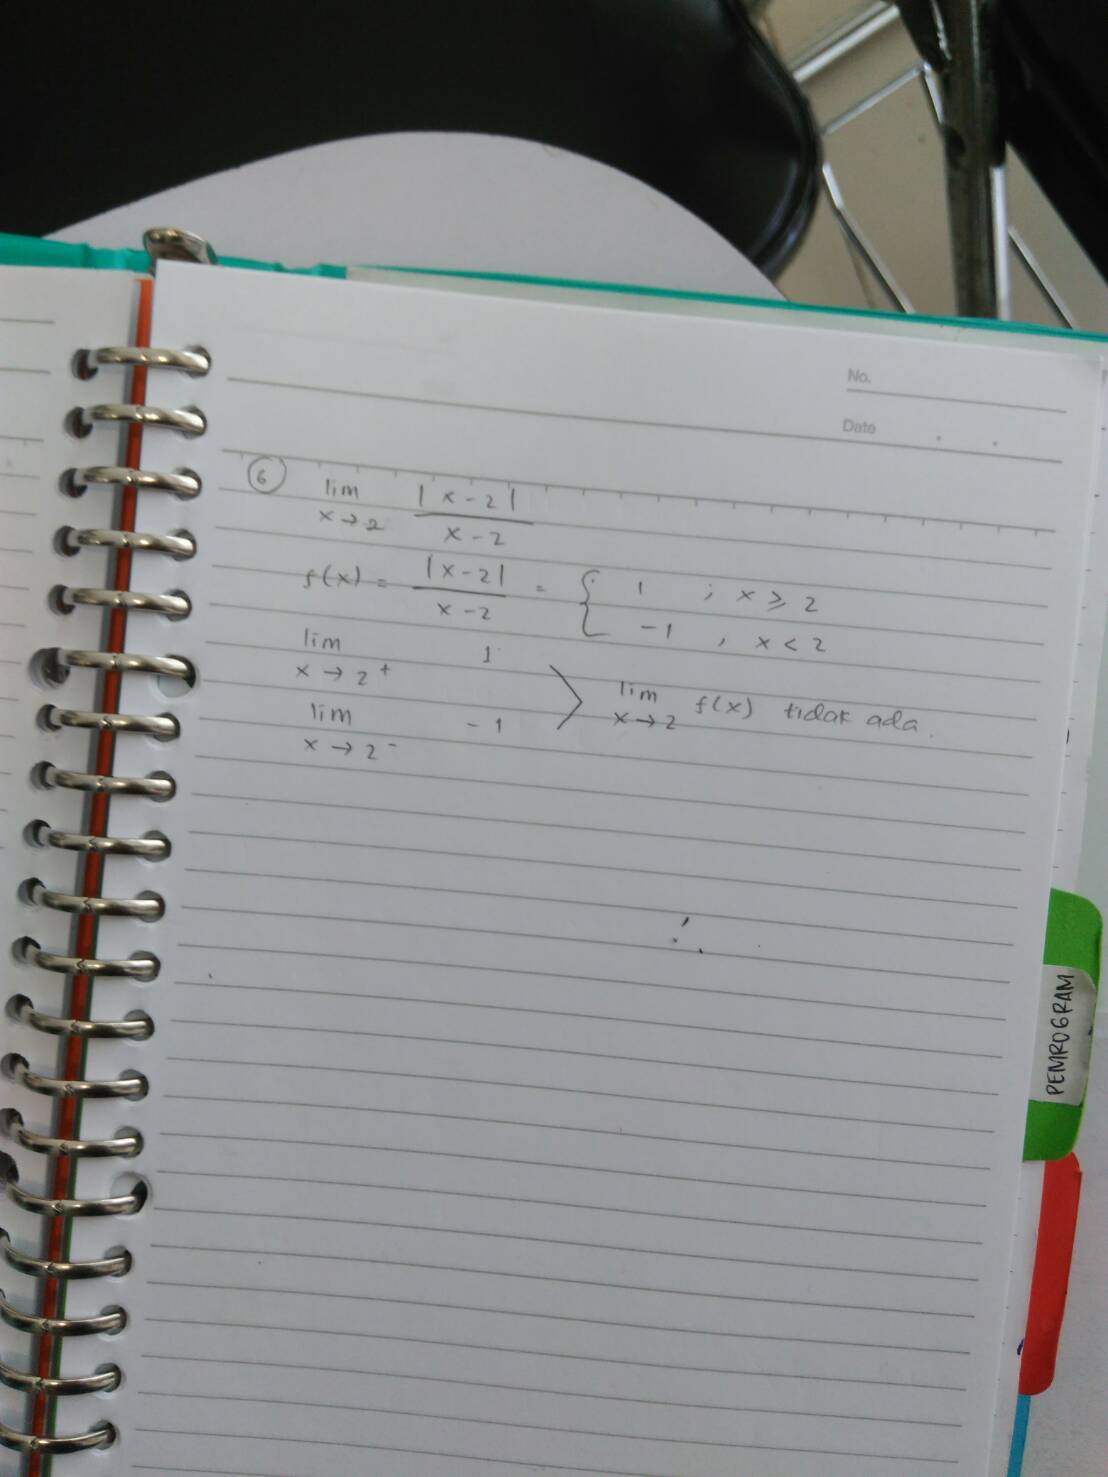 No.
Date
6 lim x→2 |x-2| / x-2
f(x) = |x-2| / x-2 = { 1 ; x ≥ 2
-1 , x < 2
lim x→2⁺ 1
lim x→2⁻ -1 > lim x→2 f(x) tidak ada.
∴
PEMROGRAM